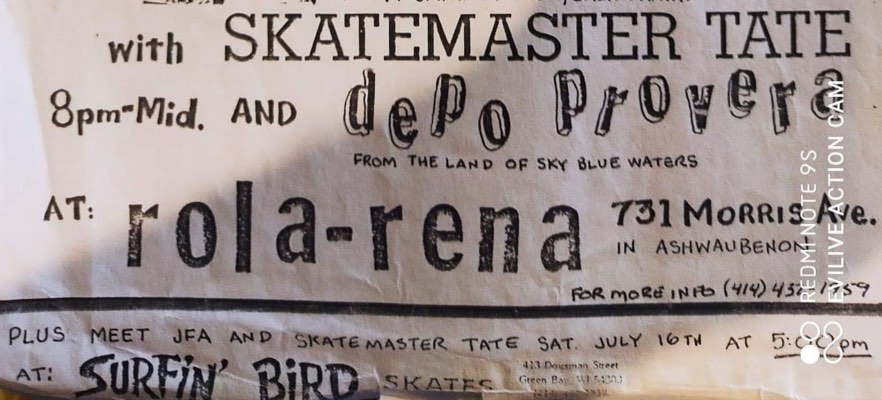 with SKATEMASTER TATE
8pm-Mid. AND depo provera
FROM THE LAND OF SKY BLUE WATERS
AT: rola-rena 731 MORRIS AVE.
IN ASHWAUBENON
FOR MORE INFO (414)
PLUS MEET JFA AND SKATEMASTER TATE SAT. JULY 16TH AT 5:00pm
AT: SURFIN' BIRD SKATES
413 Dousman Street
Green Bay, WI 54303
REDMI NOTE 9S
EVILIVE ACTION CAM